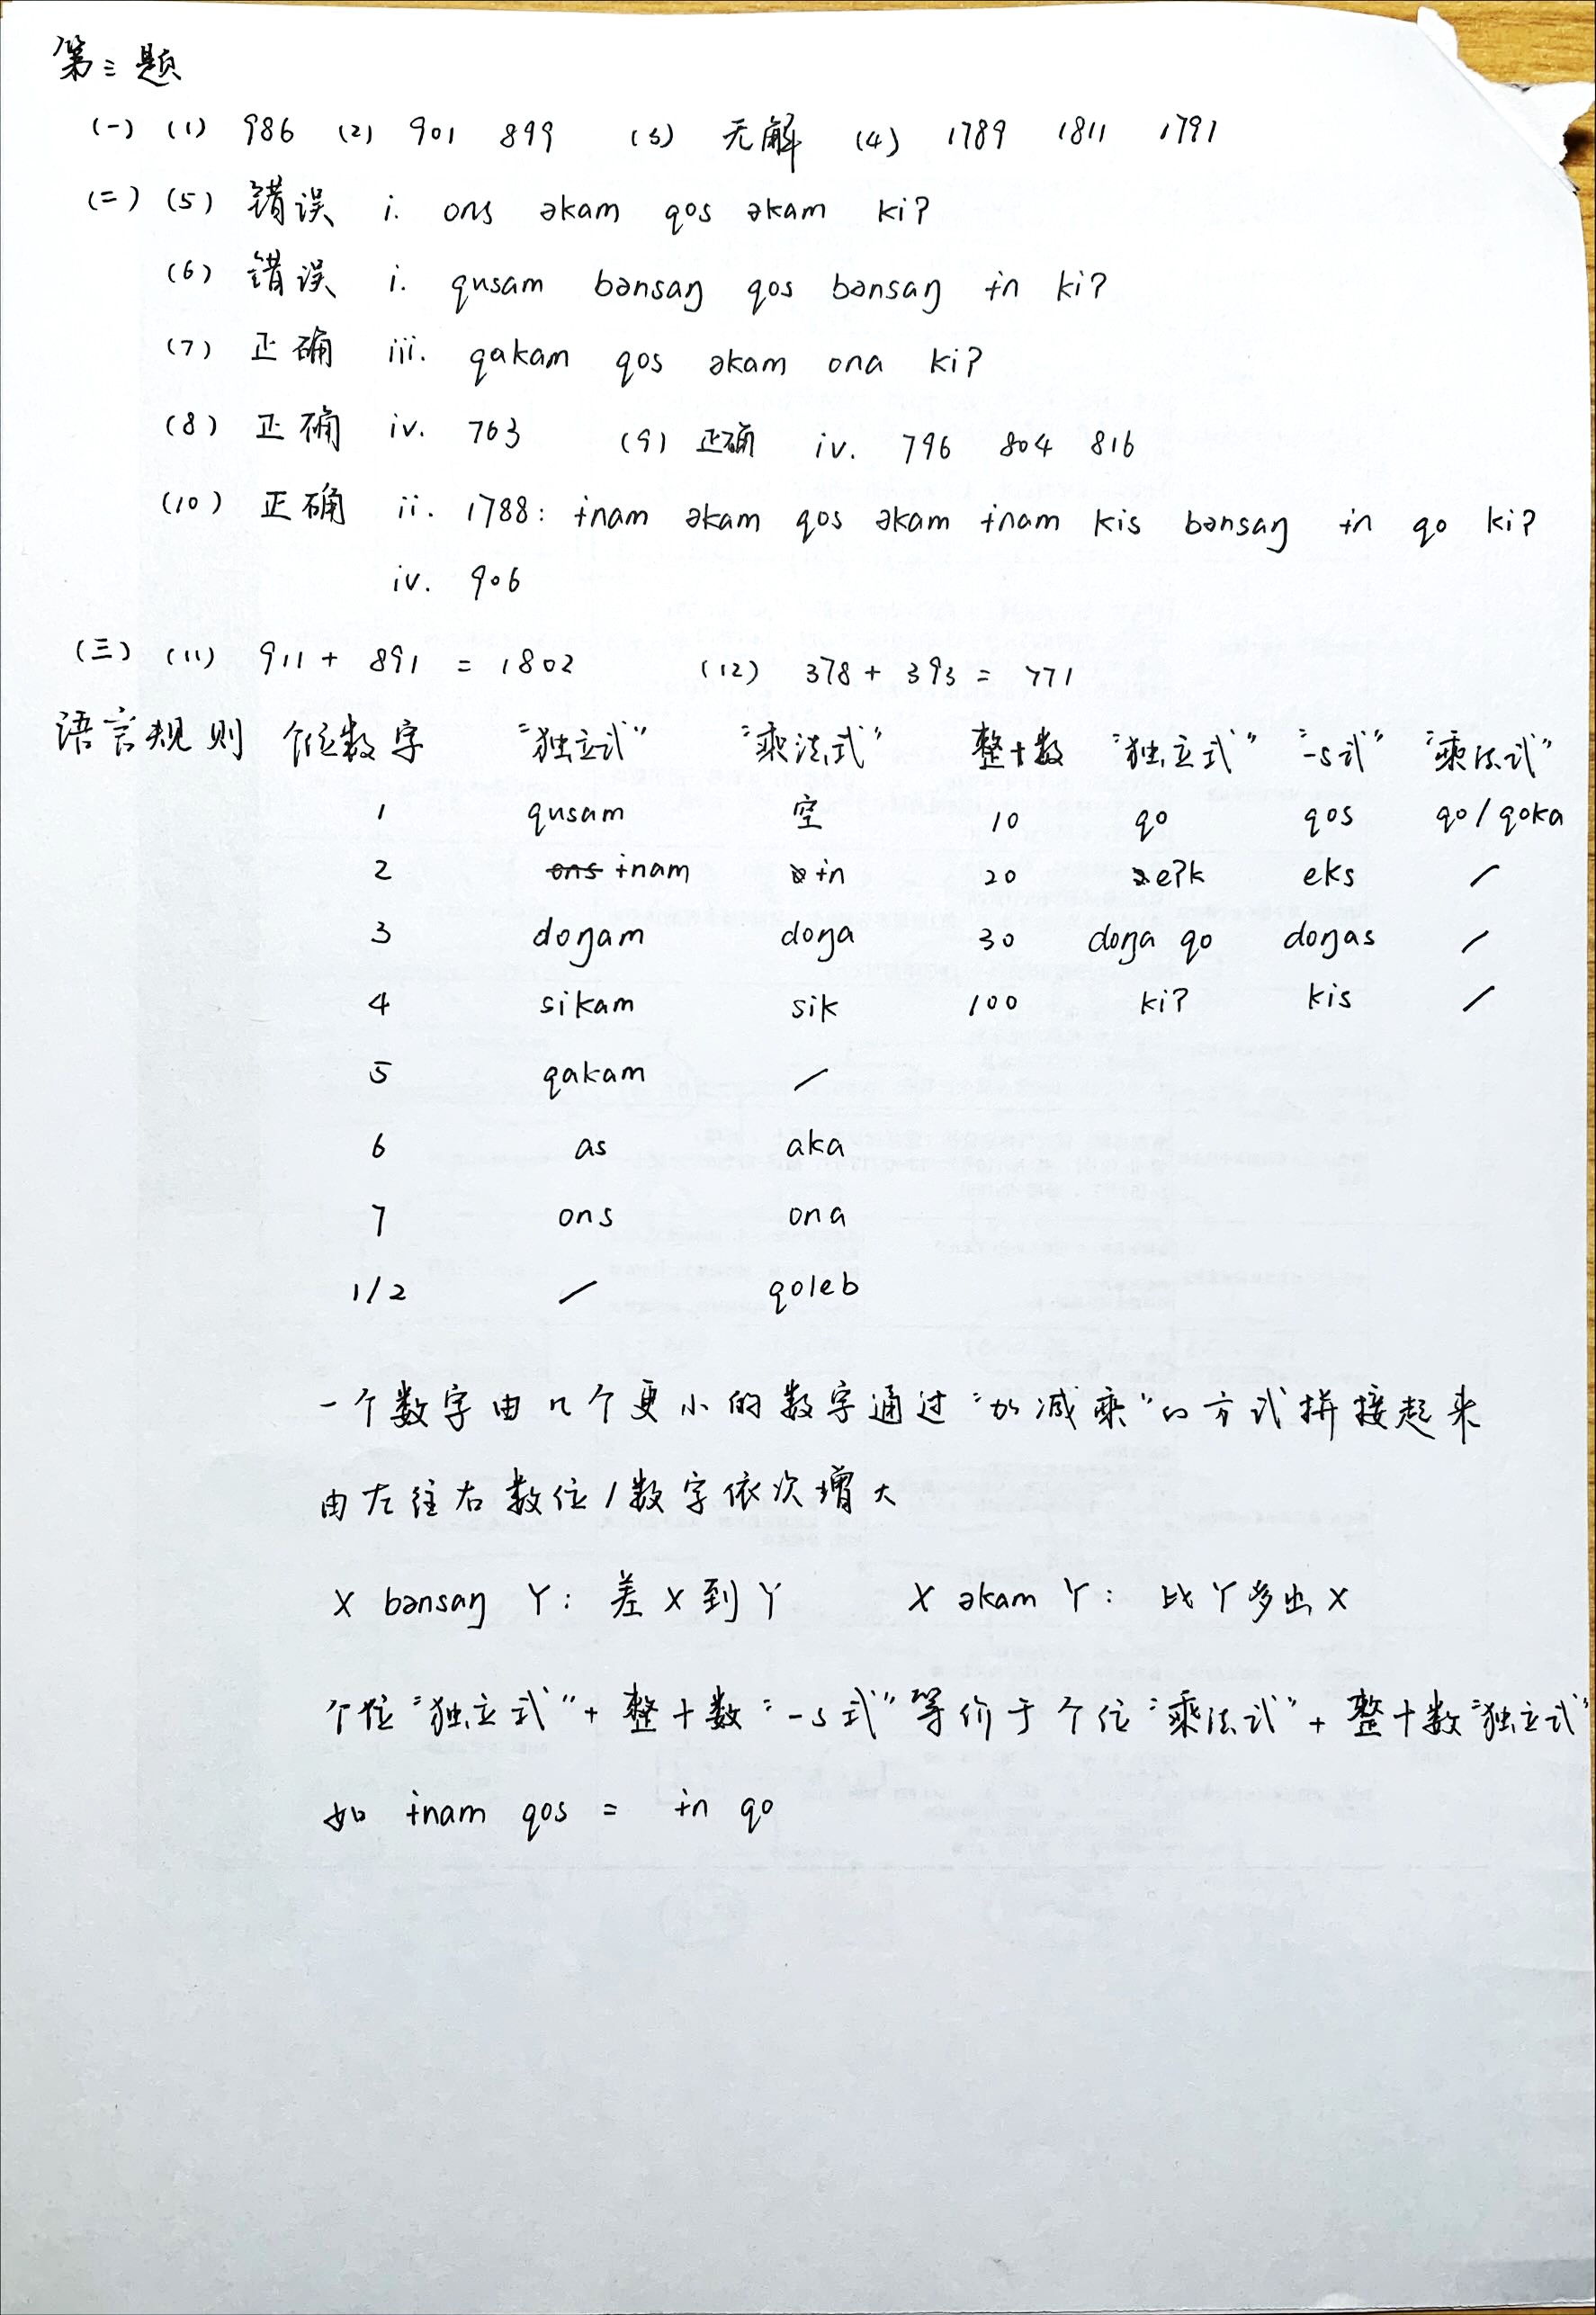 第三题
(一) (1) 986 (2) 901 899 (3) 无解 (4) 1789 1811 1791
(二) (5) 错误 i. ons əkam qos əkam kiʔ
(6) 错误 i. qusam bənsaŋ qos bənsaŋ ɨn kiʔ
(7) 正确 iii. qakam qos əkam ona kiʔ
(8) 正确 iv. 763 (9) 正确 iv. 796 804 816
(10) 正确 ii. 1788: ɨnam əkam qos əkam ɨnam kis bənsaŋ ɨn qo kiʔ
iv. 906
(三) (11) 911 + 891 = 1802 (12) 378 + 393 = 771
语言规则 个位数字 "独立式" "乘法式" 整十数 "独立式" "-s式" "乘法式"
1 qusam 空 10 qo qos qo/qoka
2 ɨnam ɨn 20 eʔk eks /
3 doŋam doŋa 30 doŋa qo doŋas /
4 sikam sik 100 kiʔ kis /
5 qakam /
6 as aka
7 ons ona
1/2 / qoleb
一个数字由几个更小的数字通过"加减乘"的方式拼接起来
由左往右数位/数字依次增大
X bənsaŋ Y: 差X到Y X əkam Y: 比Y多出X
个位"独立式"+整十数"-s式"等价于个位"乘法式"+整十数"独立式"
如 ɨnam qos = ɨn qo